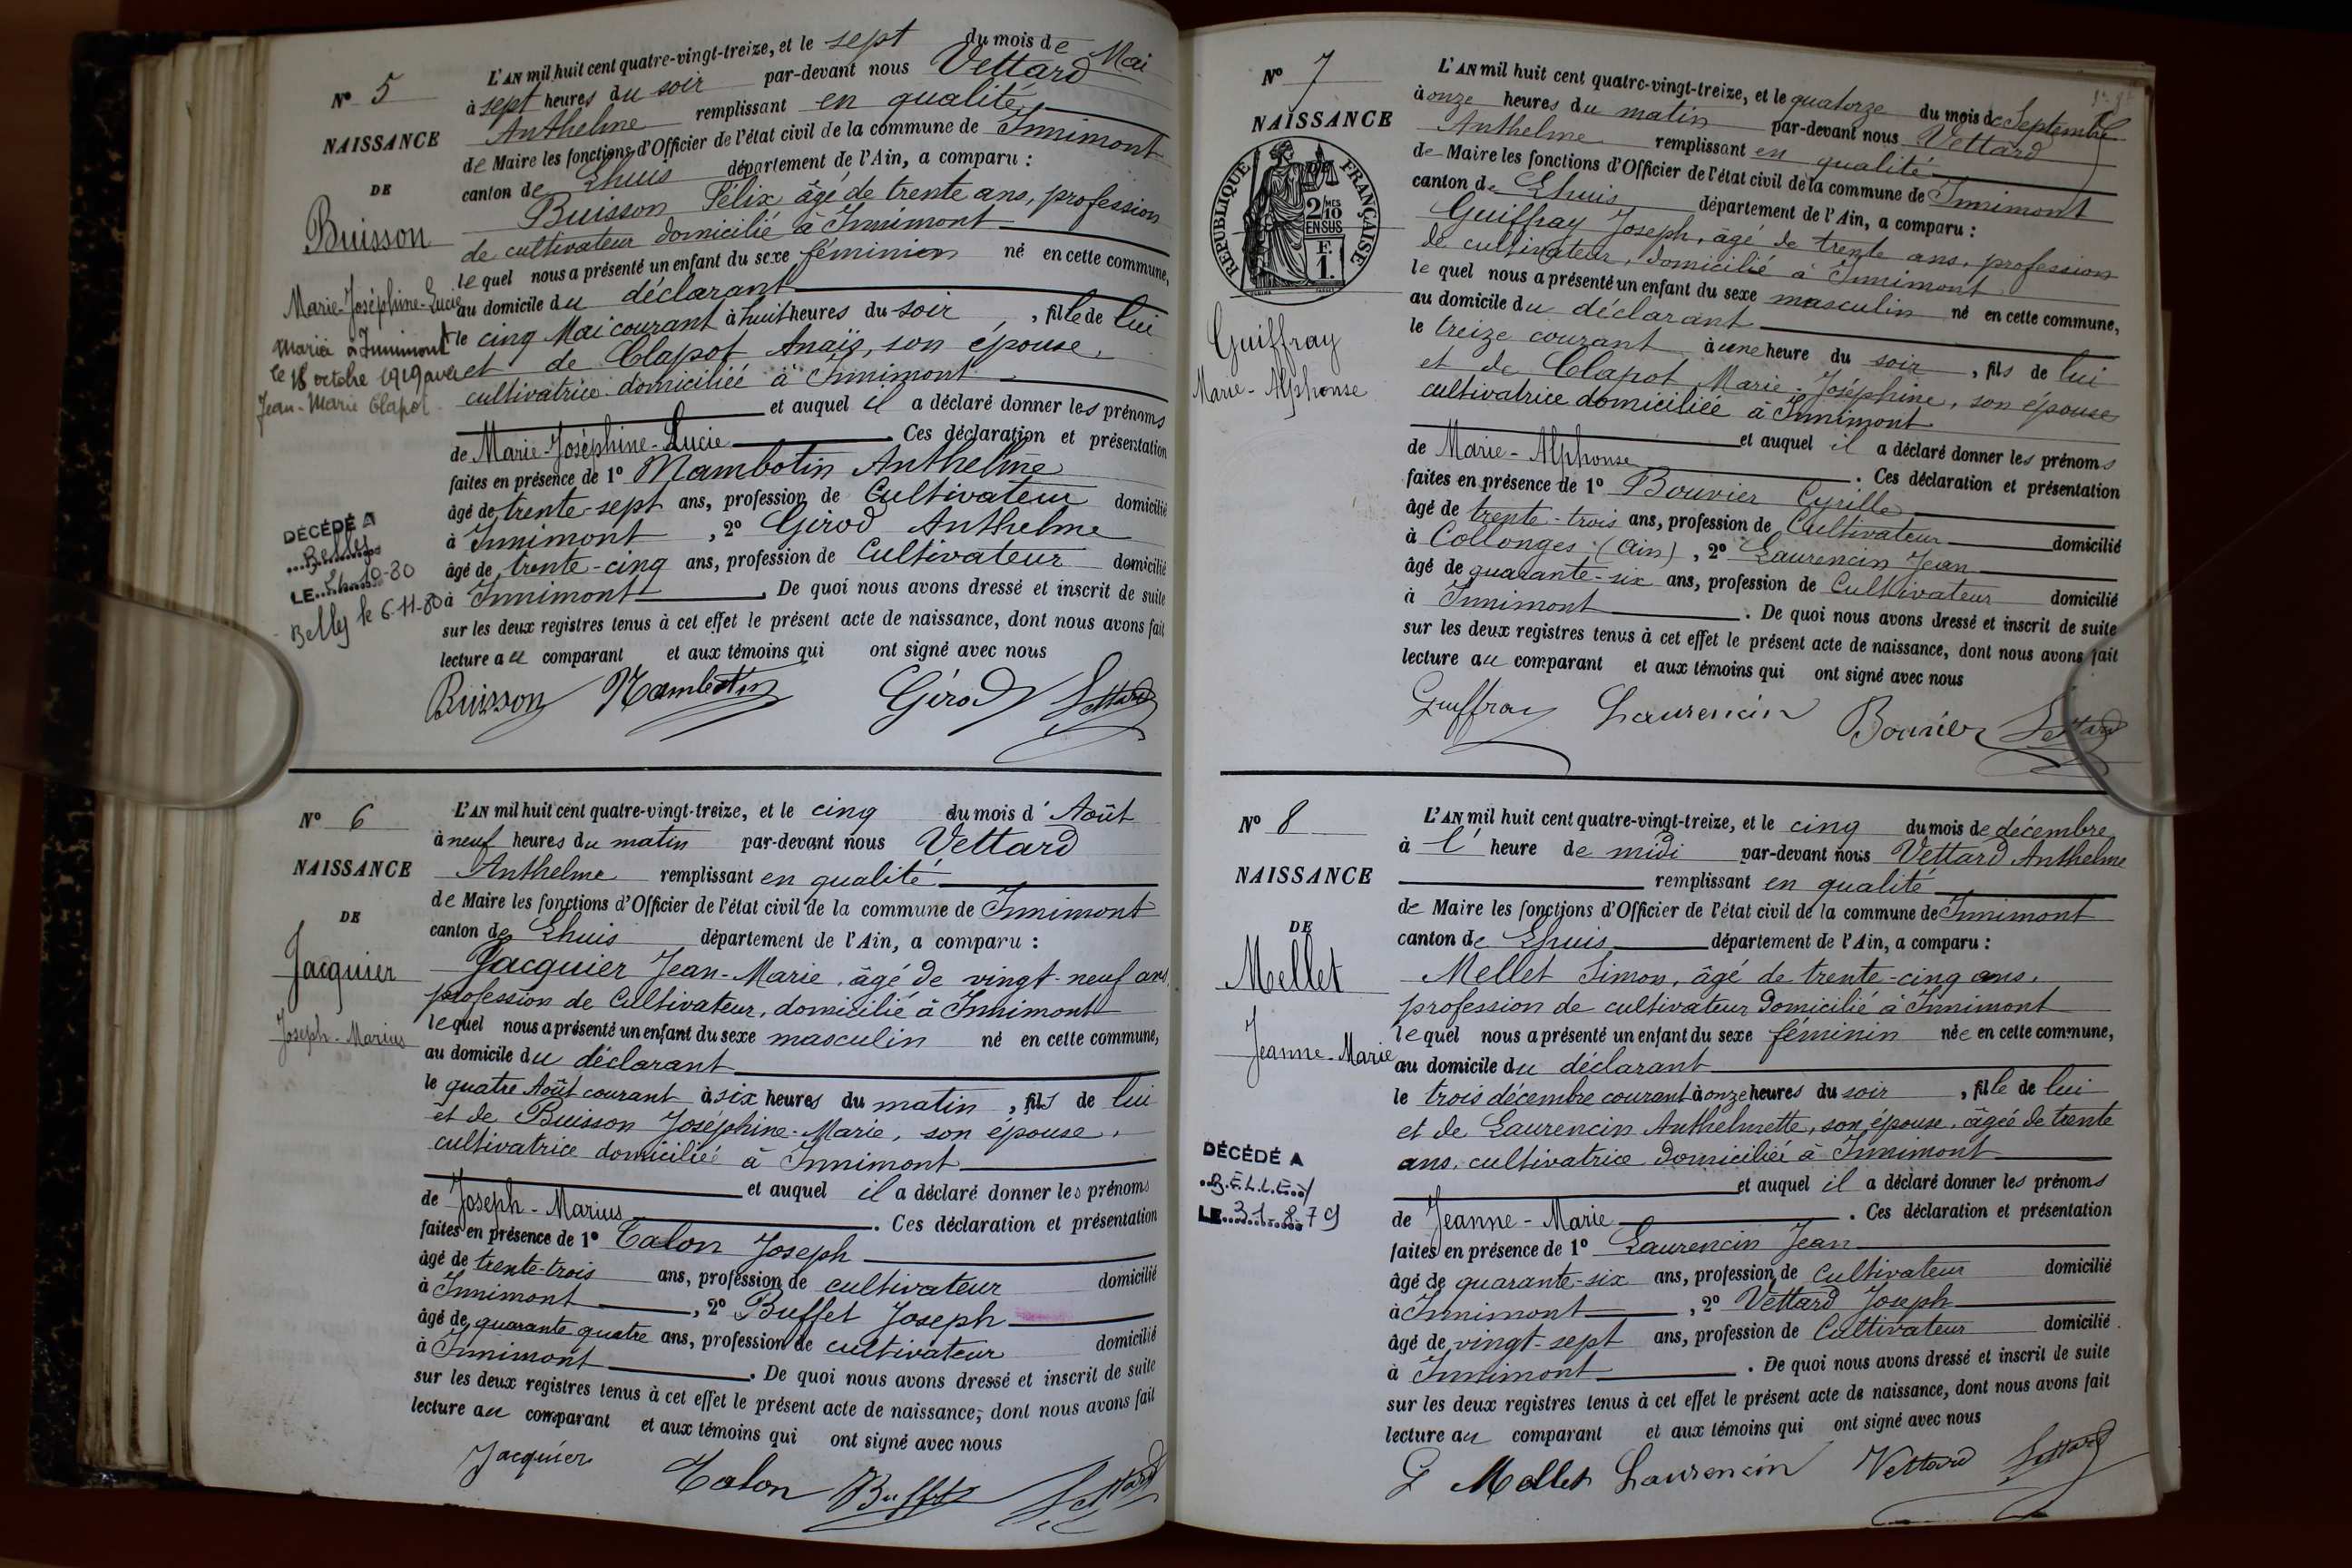 N° 5
NAISSANCE
DE
Buisson
Marie-Joséphine-Lucie
Mariée à Innimont
le 18 octobre 1919 avec
Jean-Marie Clapot
DÉCÉDÉ A
Belley
LE 10-80
Belley le 6-11-80
L'AN mil huit cent quatre-vingt-treize, et le sept du mois de Mai
à sept heures du soir par-devant nous Vettard
Anthelme remplissant en qualité
de Maire les fonctions d'Officier de l'état civil de la commune de Innimont
canton de Lhuis département de l'Ain, a comparu :
Buisson Félix âgé de trente ans, profession
de cultivateur domicilié à Innimont
lequel nous a présenté un enfant du sexe féminin né en cette commune,
au domicile du déclarant
le cinq Mai courant à huit heures du soir , fille de lui
et de Clapot Anaïs, son épouse,
cultivatrice domiciliée à Innimont
et auquel il a déclaré donner les prénoms
de Marie-Joséphine-Lucie . Ces déclaration et présentation
faites en présence de 1° Mambotin Anthelme
âgé de trente-sept ans, profession de Cultivateur domicilié
à Innimont , 2° Girod Anthelme
âgé de trente-cinq ans, profession de Cultivateur domicilié
à Innimont . De quoi nous avons dressé et inscrit de suite
sur les deux registres tenus à cet effet le présent acte de naissance, dont nous avons fait
lecture au comparant et aux témoins qui ont signé avec nous
Buisson Mambotin Gérod Vettard
N° 6
NAISSANCE
DE
Jacquier
Joseph-Marius
L'AN mil huit cent quatre-vingt-treize, et le cinq du mois d'Août
à neuf heures du matin par-devant nous Vettard
Anthelme remplissant en qualité
de Maire les fonctions d'Officier de l'état civil de la commune de Innimont
canton de Lhuis département de l'Ain, a comparu :
Jacquier Jean-Marie, âgé de vingt-neuf ans,
profession de Cultivateur, domicilié à Innimont
lequel nous a présenté un enfant du sexe masculin né en cette commune,
au domicile du déclarant
le quatre Août courant à six heures du matin , fils de lui
et de Buisson Joséphine-Marie, son épouse,
cultivatrice domiciliée à Innimont
et auquel il a déclaré donner les prénoms
de Joseph-Marius . Ces déclaration et présentation
faites en présence de 1° Talon Joseph
âgé de trente-trois ans, profession de cultivateur domicilié
à Innimont , 2° Buffet Joseph
âgé de quarante quatre ans, profession de cultivateur domicilié
à Innimont . De quoi nous avons dressé et inscrit de suite
sur les deux registres tenus à cet effet le présent acte de naissance, dont nous avons fait
lecture au comparant et aux témoins qui ont signé avec nous
Jacquier Talon Buffet Vettard
N° 7
NAISSANCE
RÉPUBLIQUE FRANÇAISE
2/10 MES
EN SUS
F.
1.
Guiffray
Marie-Alphonse
L'AN mil huit cent quatre-vingt-treize, et le quatorze du mois de Septembre
à onze heures du matin par-devant nous Vettard
Anthelme remplissant en qualité
de Maire les fonctions d'Officier de l'état civil de la commune de Innimont
canton de Lhuis département de l'Ain, a comparu :
Guiffray Joseph, âgé de trente ans, profession
de cultivateur, domicilié à Innimont
lequel nous a présenté un enfant du sexe masculin né en cette commune,
au domicile du déclarant
le treize courant à une heure du soir , fils de lui
et de Clapot Marie-Joséphine, son épouse
cultivatrice domiciliée à Innimont
et auquel il a déclaré donner les prénoms
de Marie-Alphonse . Ces déclaration et présentation
faites en présence de 1° Bouvier Cyrille
âgé de trente-trois ans, profession de Cultivateur domicilié
à Collonges (Ain) , 2° Laurencin Jean
âgé de quarante-six ans, profession de Cultivateur domicilié
à Innimont . De quoi nous avons dressé et inscrit de suite
sur les deux registres tenus à cet effet le présent acte de naissance, dont nous avons fait
lecture au comparant et aux témoins qui ont signé avec nous
Guiffray Laurencin Bouvier Vettard
N° 8
NAISSANCE
DE
Mellet
Jeanne-Marie
DÉCÉDÉ A
BELLEY
LE 31-8-79
L'AN mil huit cent quatre-vingt-treize, et le cinq du mois de décembre
à l' heure de midi par-devant nous Vettard Anthelme
remplissant en qualité
de Maire les fonctions d'Officier de l'état civil de la commune de Innimont
canton de Lhuis département de l'Ain, a comparu :
Mellet Simon, âgé de trente-cinq ans,
profession de cultivateur domicilié à Innimont
lequel nous a présenté un enfant du sexe féminin née en cette commune,
au domicile du déclarant
le trois décembre courant à onze heures du soir , fille de lui
et de Laurencin Anthelmette, son épouse, âgée de trente
ans, cultivatrice domiciliée à Innimont
et auquel il a déclaré donner les prénoms
de Jeanne-Marie . Ces déclaration et présentation
faites en présence de 1° Laurencin Jean
âgé de quarante-six ans, profession de Cultivateur domicilié
à Innimont , 2° Vettard Joseph
âgé de vingt-sept ans, profession de Cultivateur domicilié
à Innimont . De quoi nous avons dressé et inscrit de suite
sur les deux registres tenus à cet effet le présent acte de naissance, dont nous avons fait
lecture au comparant et aux témoins qui ont signé avec nous
Mellet Laurencin Vettard Vettard